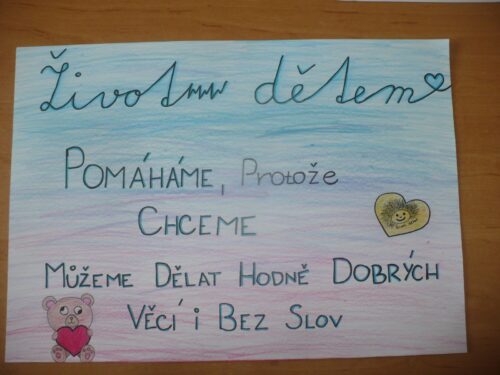 Život dětem
POMÁHÁME, Protože
CHCEME
MŮŽEME DĚLAT HODNĚ DOBRÝCH
VĚCÍ i BEZ SLOV